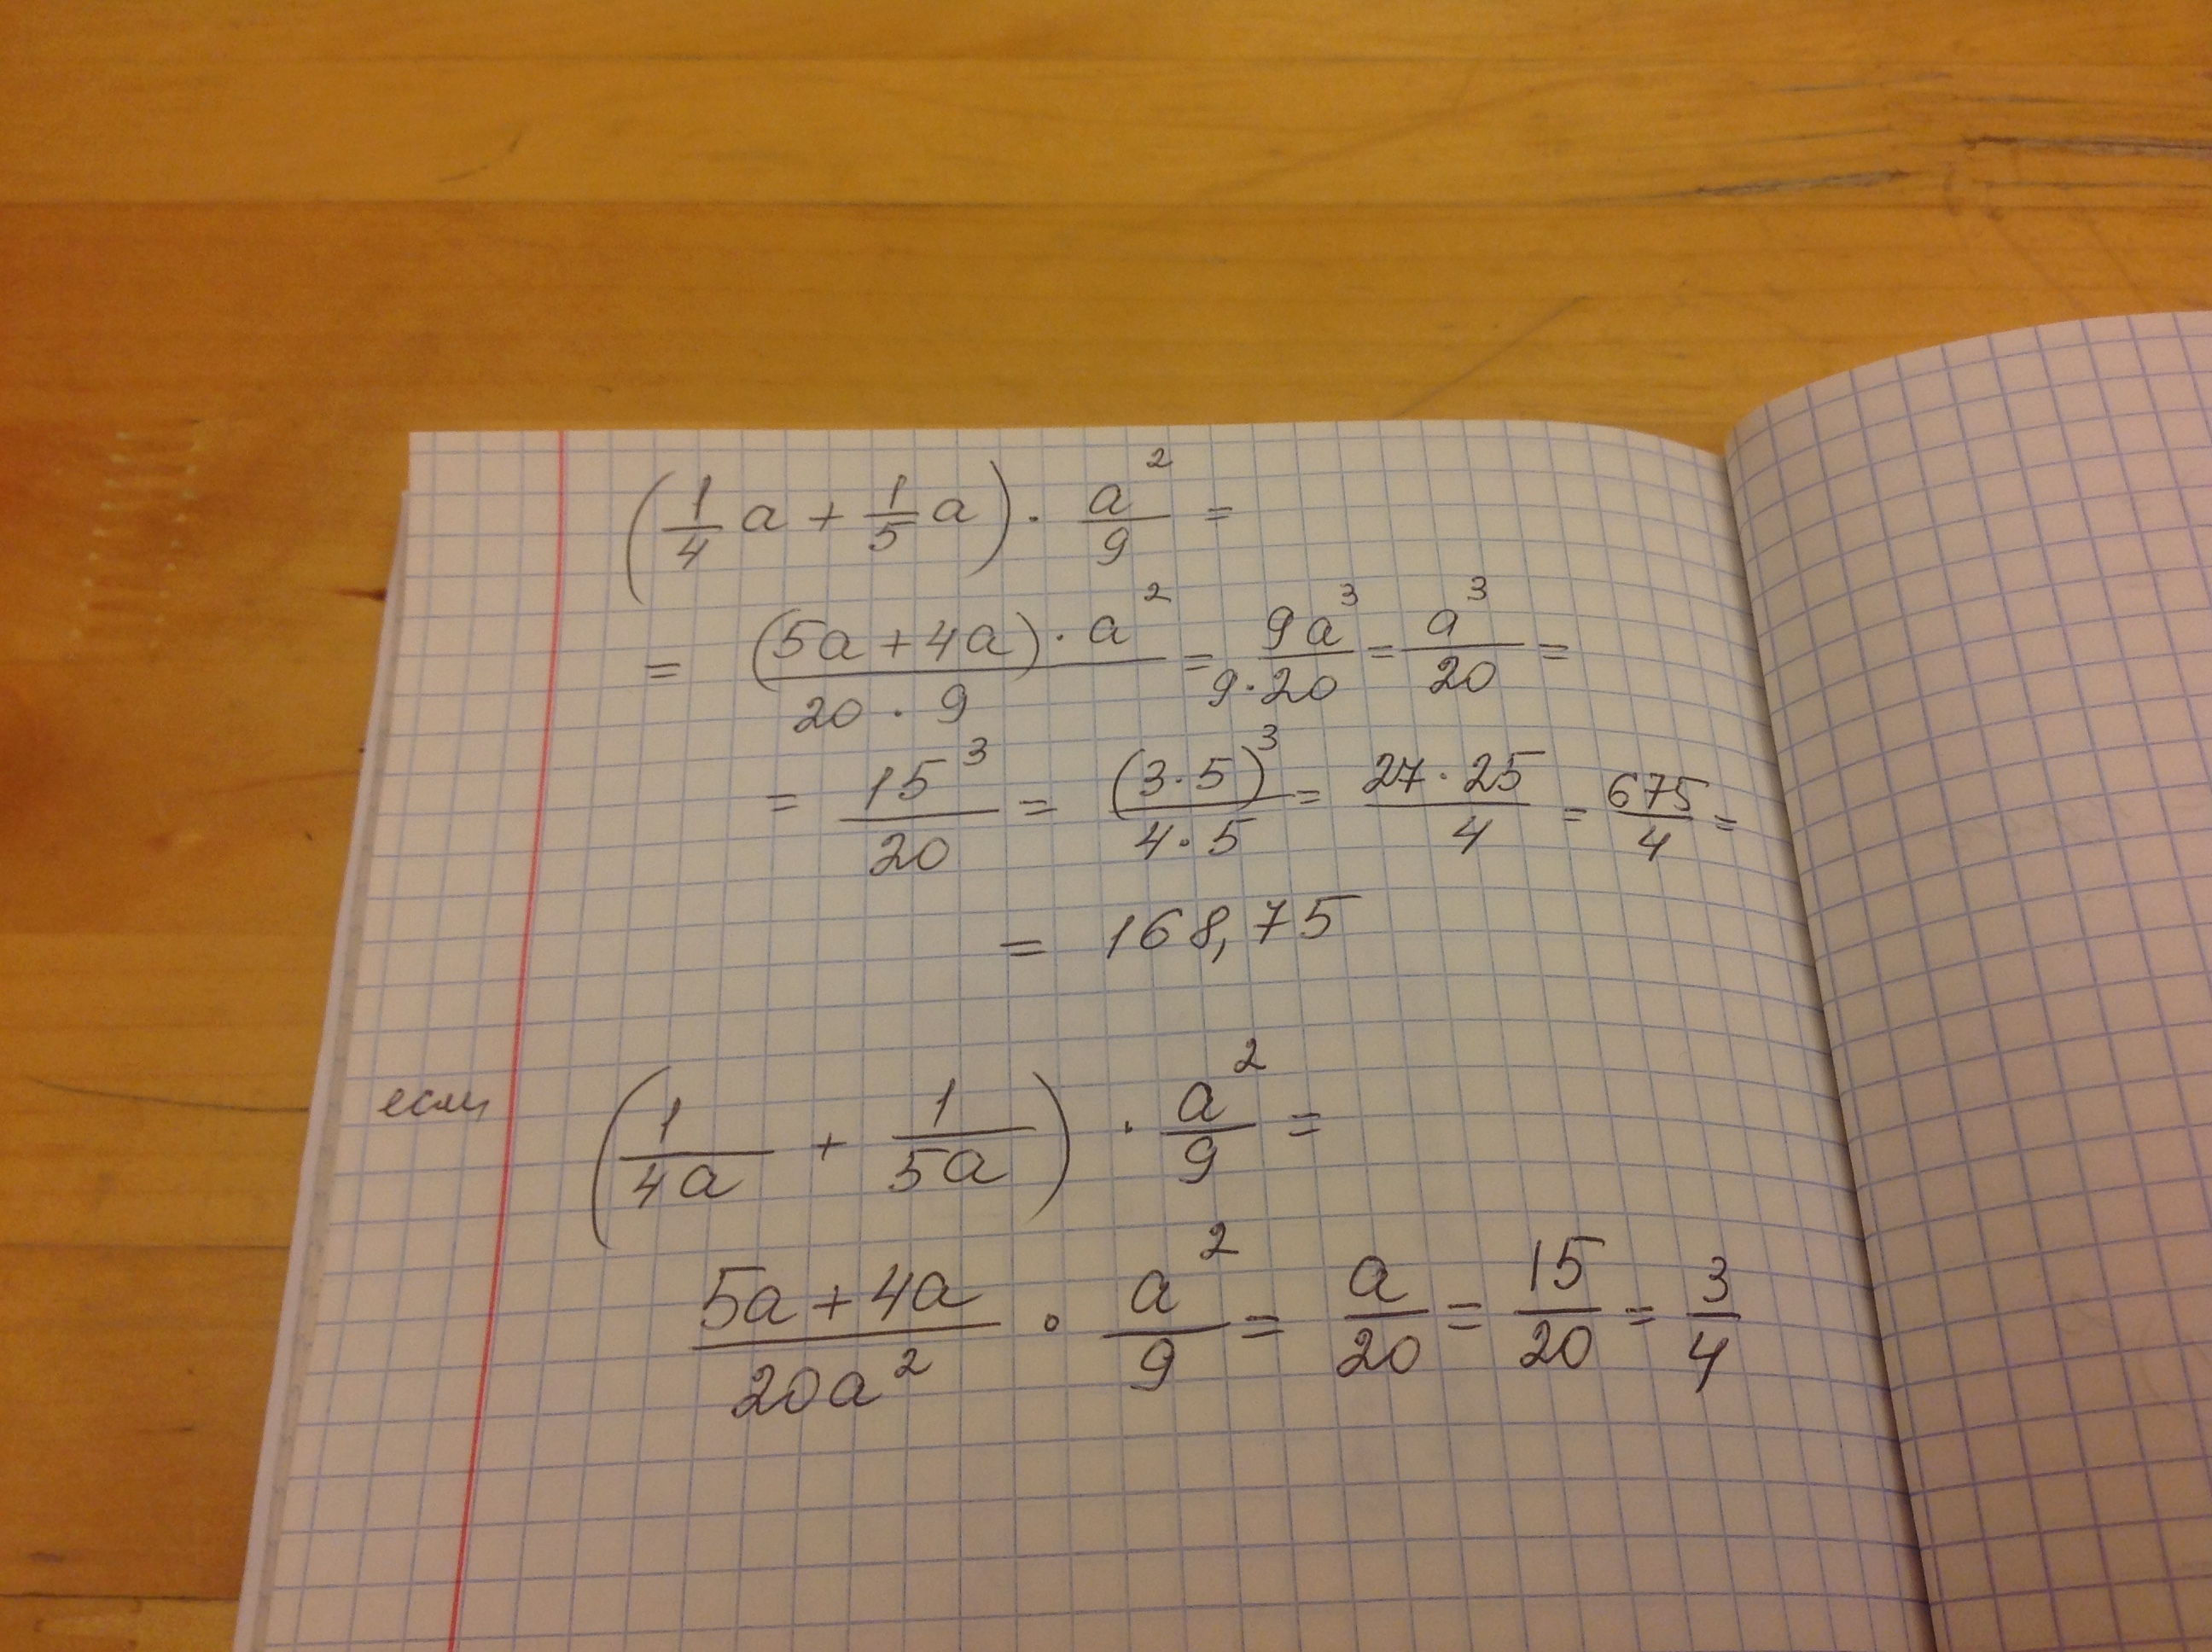 (1/4 a + 1/5 a) · a²/9 =
= (5a + 4a) · a² / 20 · 9 = 9a³ / 9·20 = a³/20 =
= 15³/20 = (3·5)³ / 4·5 = 27·25 / 4 = 675/4 =
= 168,75
если (1/4a + 1/5a) · a²/9 =
5a + 4a / 20a² · a²/9 = a/20 = 15/20 = 3/4